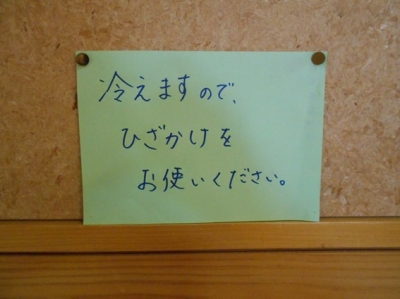 冷えますので、
ひざかけを
お使いください。